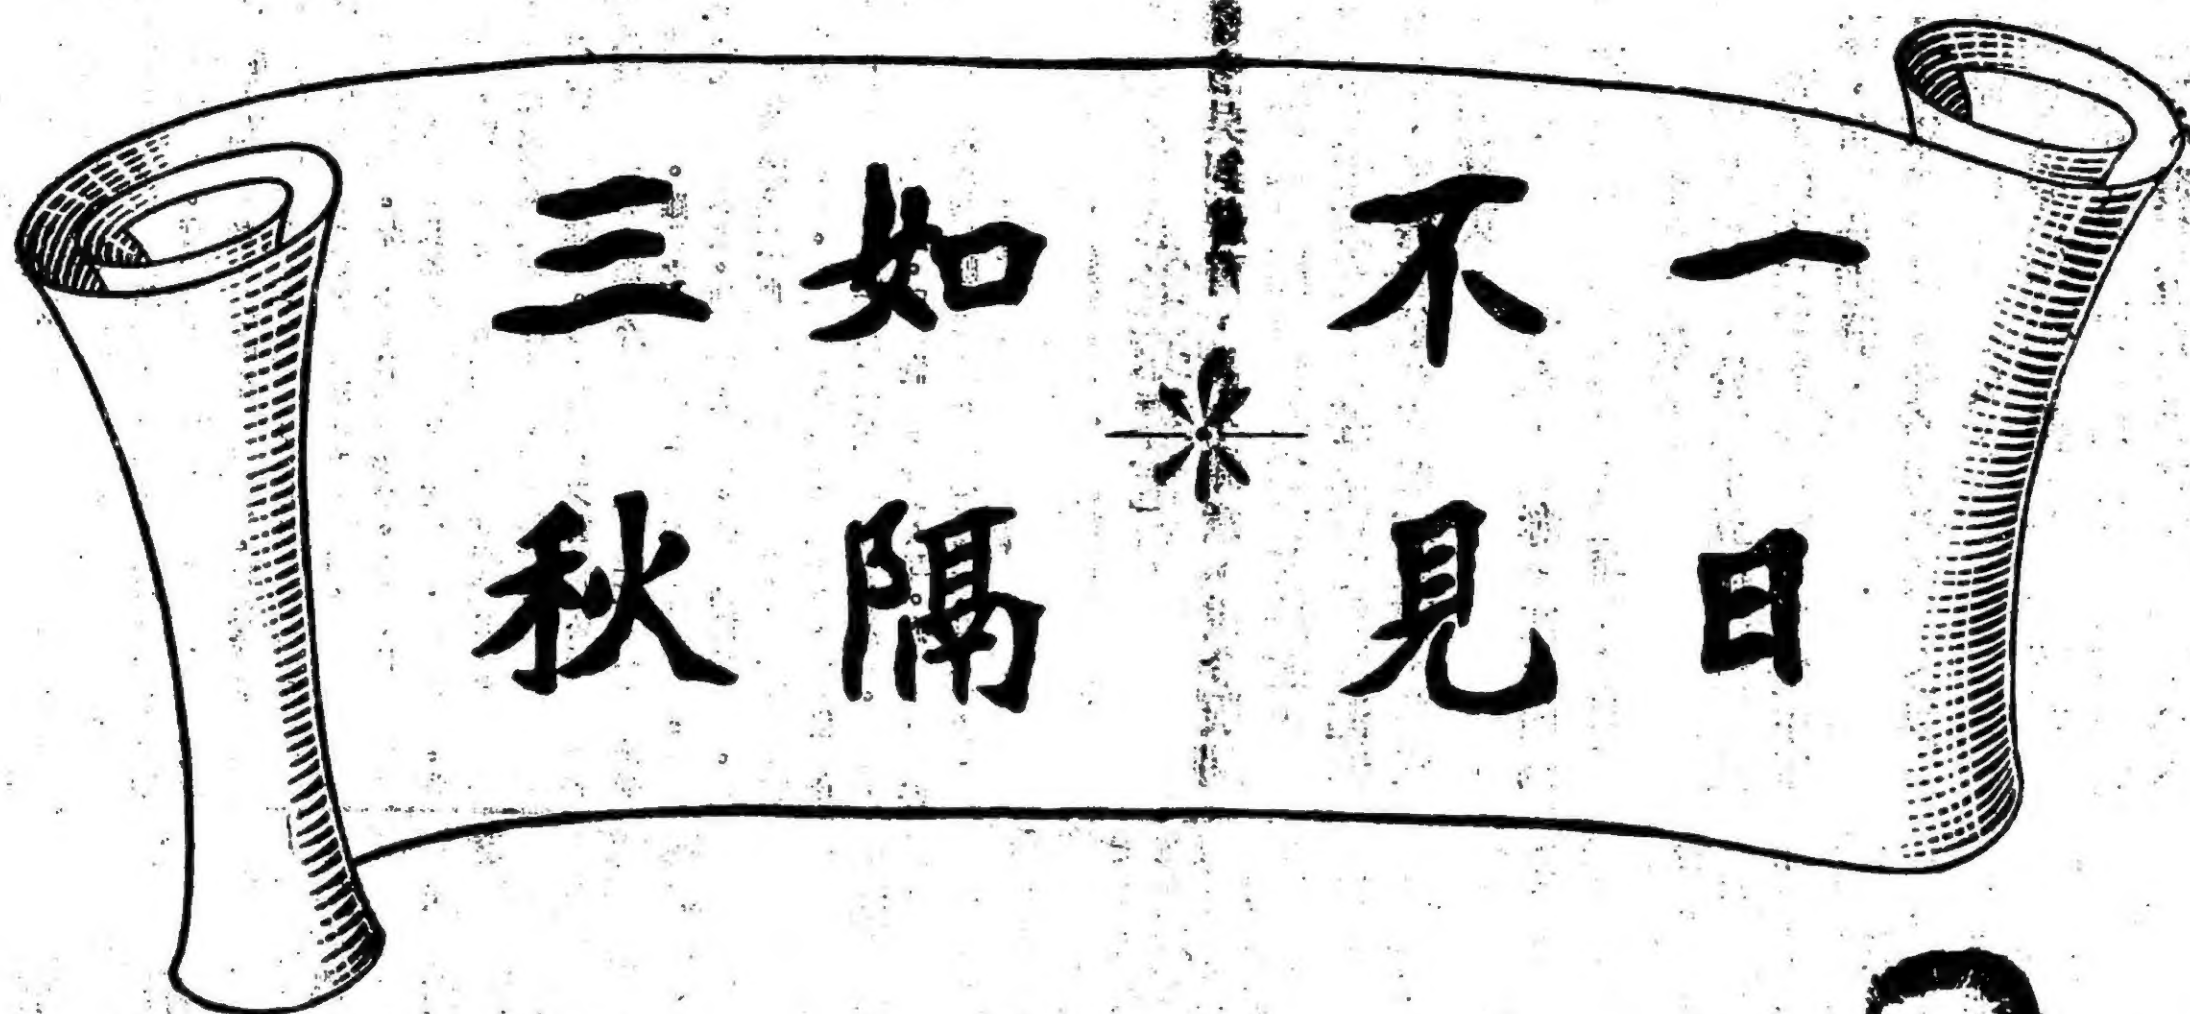 一日
不見
如隔
三秋